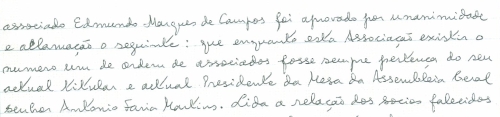 associado Edmundo Marques de Campos foi aprovado por unanimidade
e aclamação o seguinte: que enquanto esta Associação existir o
numero um de ordem de associados fosse sempre pertença do seu
actual titular e actual Presidente da Mesa da Assembleia Geral
senhor Antonio Faria Martins. Lida a relação dos socios falecidos